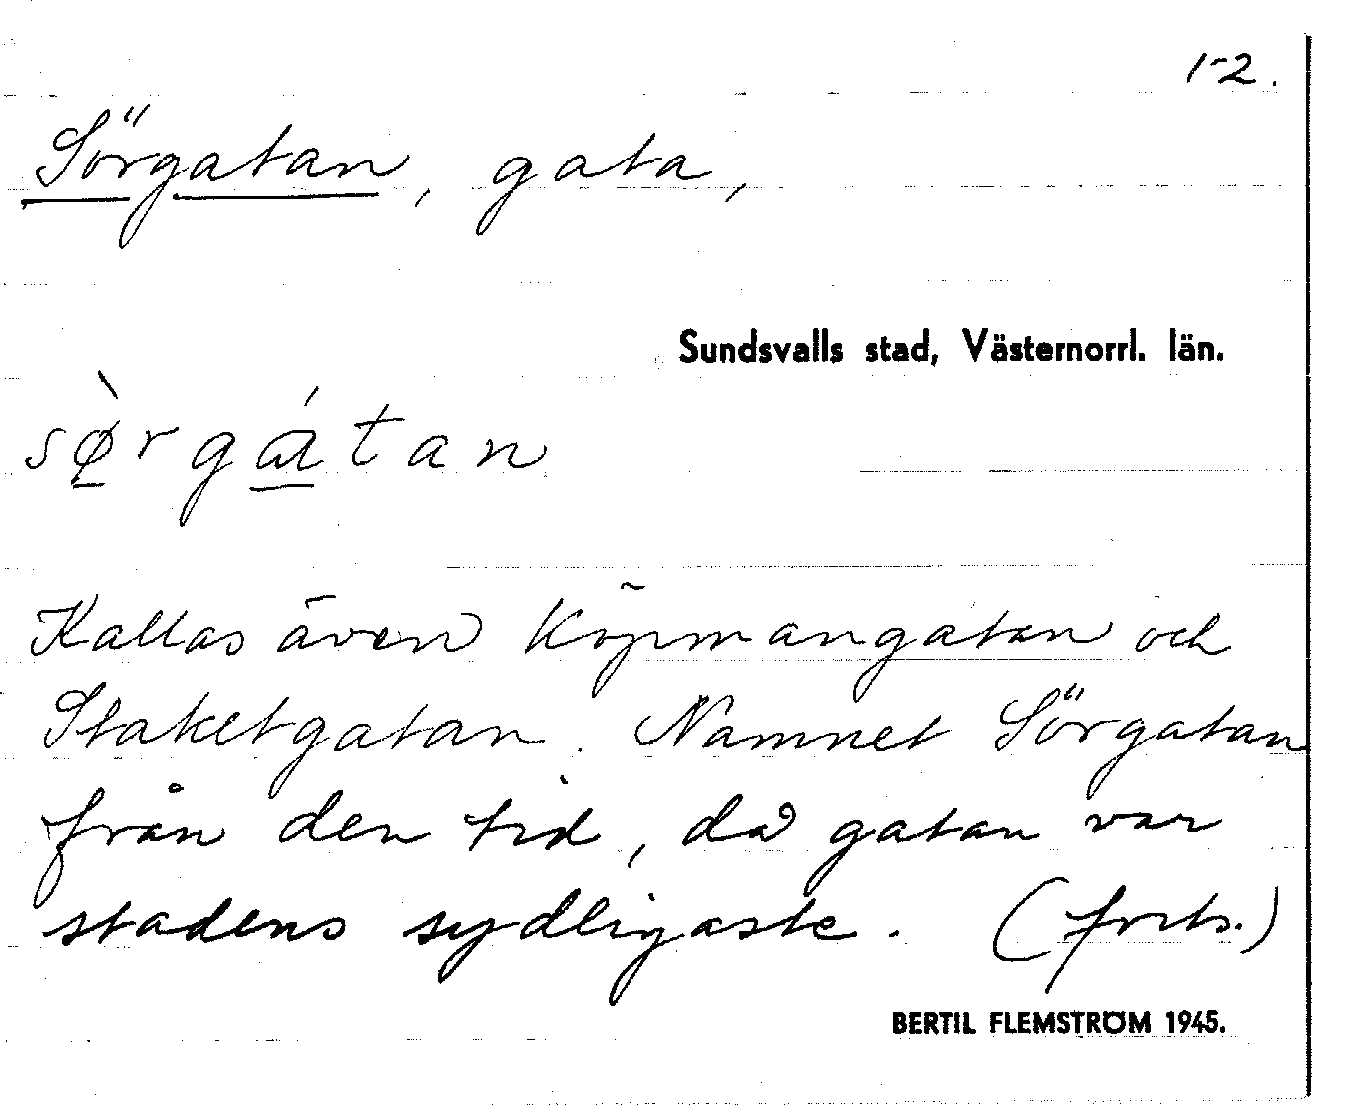 1-2.
Sörgatan, gata,
Sundsvalls stad, Västernorrl. län.
sø̀rgátan
Kallas även Köpmangatan och
Staketgatan. Namnet Sörgatan
från den tid, då gatan var
stadens sydligaste. (forts.)
BERTIL FLEMSTRÖM 1945.